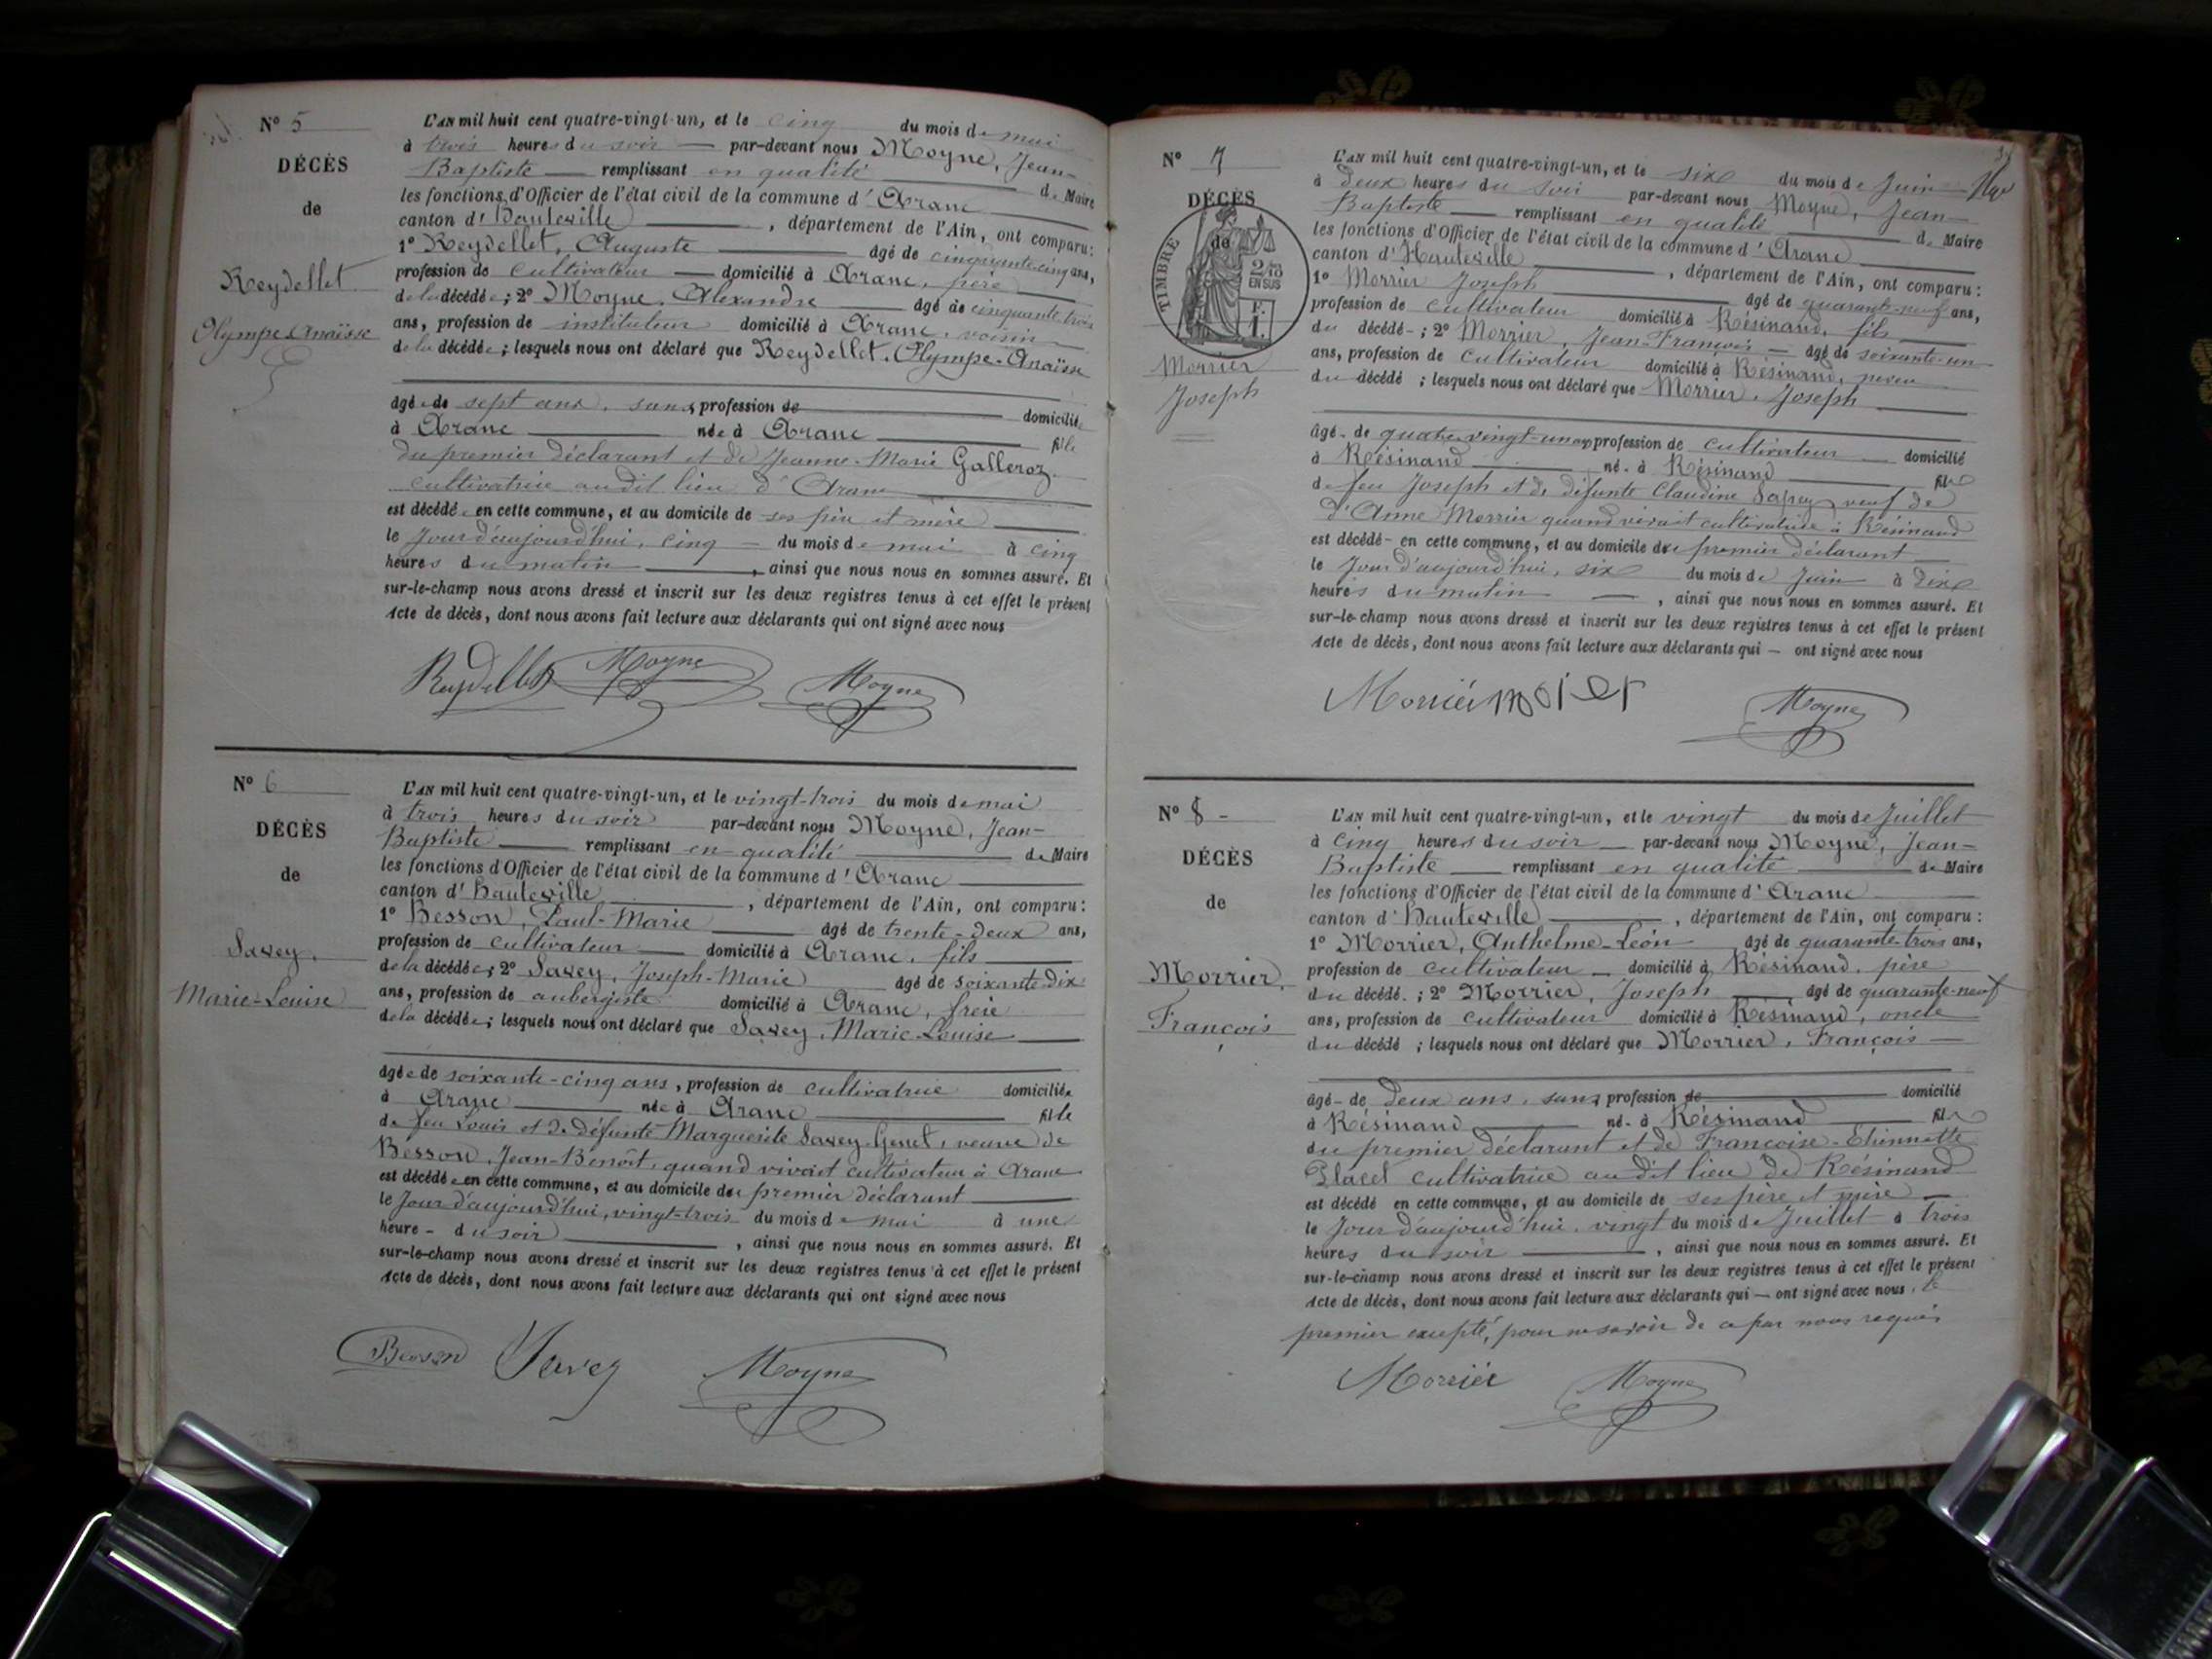 N° 5
DÉCÈS
de
Reydellet
Olympe Anaïsse
L'AN mil huit cent quatre-vingt-un, et le cinq du mois de mai
à trois heures du soir par-devant nous Moyne, Jean-
Baptiste remplissant en qualité de Maire
les fonctions d'Officier de l'état civil de la commune d'Aranc
canton d'Hauteville, département de l'Ain, ont comparu:
1° Reydellet, Auguste âgé de cinquante cinq ans,
profession de cultivateur domicilié à Aranc, père
de la décédée; 2° Moyne, Alexandre âgé de cinquante trois
ans, profession de instituteur domicilié à Aranc, voisin
de la décédée; lesquels nous ont déclaré que Reydellet, Olympe-Anaïsse
âgée de sept ans, sans profession de domiciliée
à Aranc née à Aranc fille
du premier déclarant et de Jeanne-Marie Galleroz
cultivatrice audit lieu d'Aranc
est décédée en cette commune, et au domicile de ses père et mère
le jour d'aujourd'hui, cinq du mois de mai à cinq
heures du matin, ainsi que nous nous en sommes assuré. Et
sur-le-champ nous avons dressé et inscrit sur les deux registres tenus à cet effet le présent
Acte de décès, dont nous avons fait lecture aux déclarants qui ont signé avec nous
Reydellet Moyne Moyne
N° 6
DÉCÈS
de
Savey,
Marie-Louise
L'AN mil huit cent quatre-vingt-un, et le vingt-trois du mois de mai
à trois heures du soir par-devant nous Moyne, Jean-
Baptiste remplissant en qualité de Maire
les fonctions d'Officier de l'état civil de la commune d'Aranc
canton d'Hauteville, département de l'Ain, ont comparu:
1° Besson, Paul-Marie âgé de trente-deux ans,
profession de cultivateur domicilié à Aranc, fils
de la décédée; 2° Savey, Joseph-Marie âgé de soixante-dix
ans, profession de aubergiste domicilié à Aranc, frère
de la décédée; lesquels nous ont déclaré que Savey, Marie-Louise
âgée de soixante-cinq ans, profession de cultivatrice domiciliée
à Aranc née à Aranc fille
de feu Louis et de défunte Marguerite Savey-Genet, veuve de
Besson, Jean-Benoît, quand vivait cultivateur à Aranc
est décédée en cette commune, et au domicile du premier déclarant
le jour d'aujourd'hui, vingt-trois du mois de mai à une
heure - du soir, ainsi que nous nous en sommes assuré. Et
sur-le-champ nous avons dressé et inscrit sur les deux registres tenus à cet effet le présent
Acte de décès, dont nous avons fait lecture aux déclarants qui ont signé avec nous
Besson Savey Moyne
N° 7
DÉCÈS
de
TIMBRE
2/10
EN SUS
F.
1.
Morrier
Joseph
L'AN mil huit cent quatre-vingt-un, et le six du mois de Juin
à deux heures du soir par-devant nous Moyne, Jean-
Baptiste remplissant en qualité de Maire
les fonctions d'Officier de l'état civil de la commune d'Aranc
canton d'Hauteville, département de l'Ain, ont comparu:
1° Morrier Joseph âgé de quarante-neuf ans,
profession de cultivateur domicilié à Résinand, fils
du décédé; 2° Morrier, Jean-François âgé de soixante-un
ans, profession de cultivateur domicilié à Résinand, neveu
du décédé; lesquels nous ont déclaré que Morrier, Joseph
âgé de quatre-vingt-un ans profession de cultivateur domicilié
à Résinand né à Résinand fils
de feu Joseph et de défunte Claudine veuf de
d'Anne Morrier quand vivait cultivatrice à Résinand
est décédé en cette commune, et au domicile du premier déclarant
le jour d'aujourd'hui, six du mois de Juin à dix
heures du matin, ainsi que nous nous en sommes assuré. Et
sur-le-champ nous avons dressé et inscrit sur les deux registres tenus à cet effet le présent
Acte de décès, dont nous avons fait lecture aux déclarants qui ont signé avec nous
Morrier morier Moyne
N° 8 -
DÉCÈS
de
Morrier,
François
L'AN mil huit cent quatre-vingt-un, et le vingt du mois de Juillet
à cinq heures du soir par-devant nous Moyne, Jean-
Baptiste remplissant en qualité de Maire
les fonctions d'Officier de l'état civil de la commune d'Aranc
canton d'Hauteville, département de l'Ain, ont comparu:
1° Morrier, Anthelme-Léon âgé de quarante-trois ans,
profession de cultivateur domicilié à Résinand, père
du décédé; 2° Morrier, Joseph âgé de quarante-neuf
ans, profession de cultivateur domicilié à Résinand, oncle
du décédé; lesquels nous ont déclaré que Morrier, François
âgé de deux ans, sans profession de domicilié
à Résinand né à Résinand fils
du premier déclarant et de Françoise-Etiennette
Placet cultivatrice au dit lieu de Résinand
est décédé en cette commune, et au domicile de ses père et mère
le jour d'aujourd'hui, vingt du mois de Juillet à trois
heures du soir, ainsi que nous nous en sommes assuré. Et
sur-le-champ nous avons dressé et inscrit sur les deux registres tenus à cet effet le présent
Acte de décès, dont nous avons fait lecture aux déclarants qui ont signé avec nous, le
premier excepté, pour ne savoir de ce par nous requis
Morrier Moyne